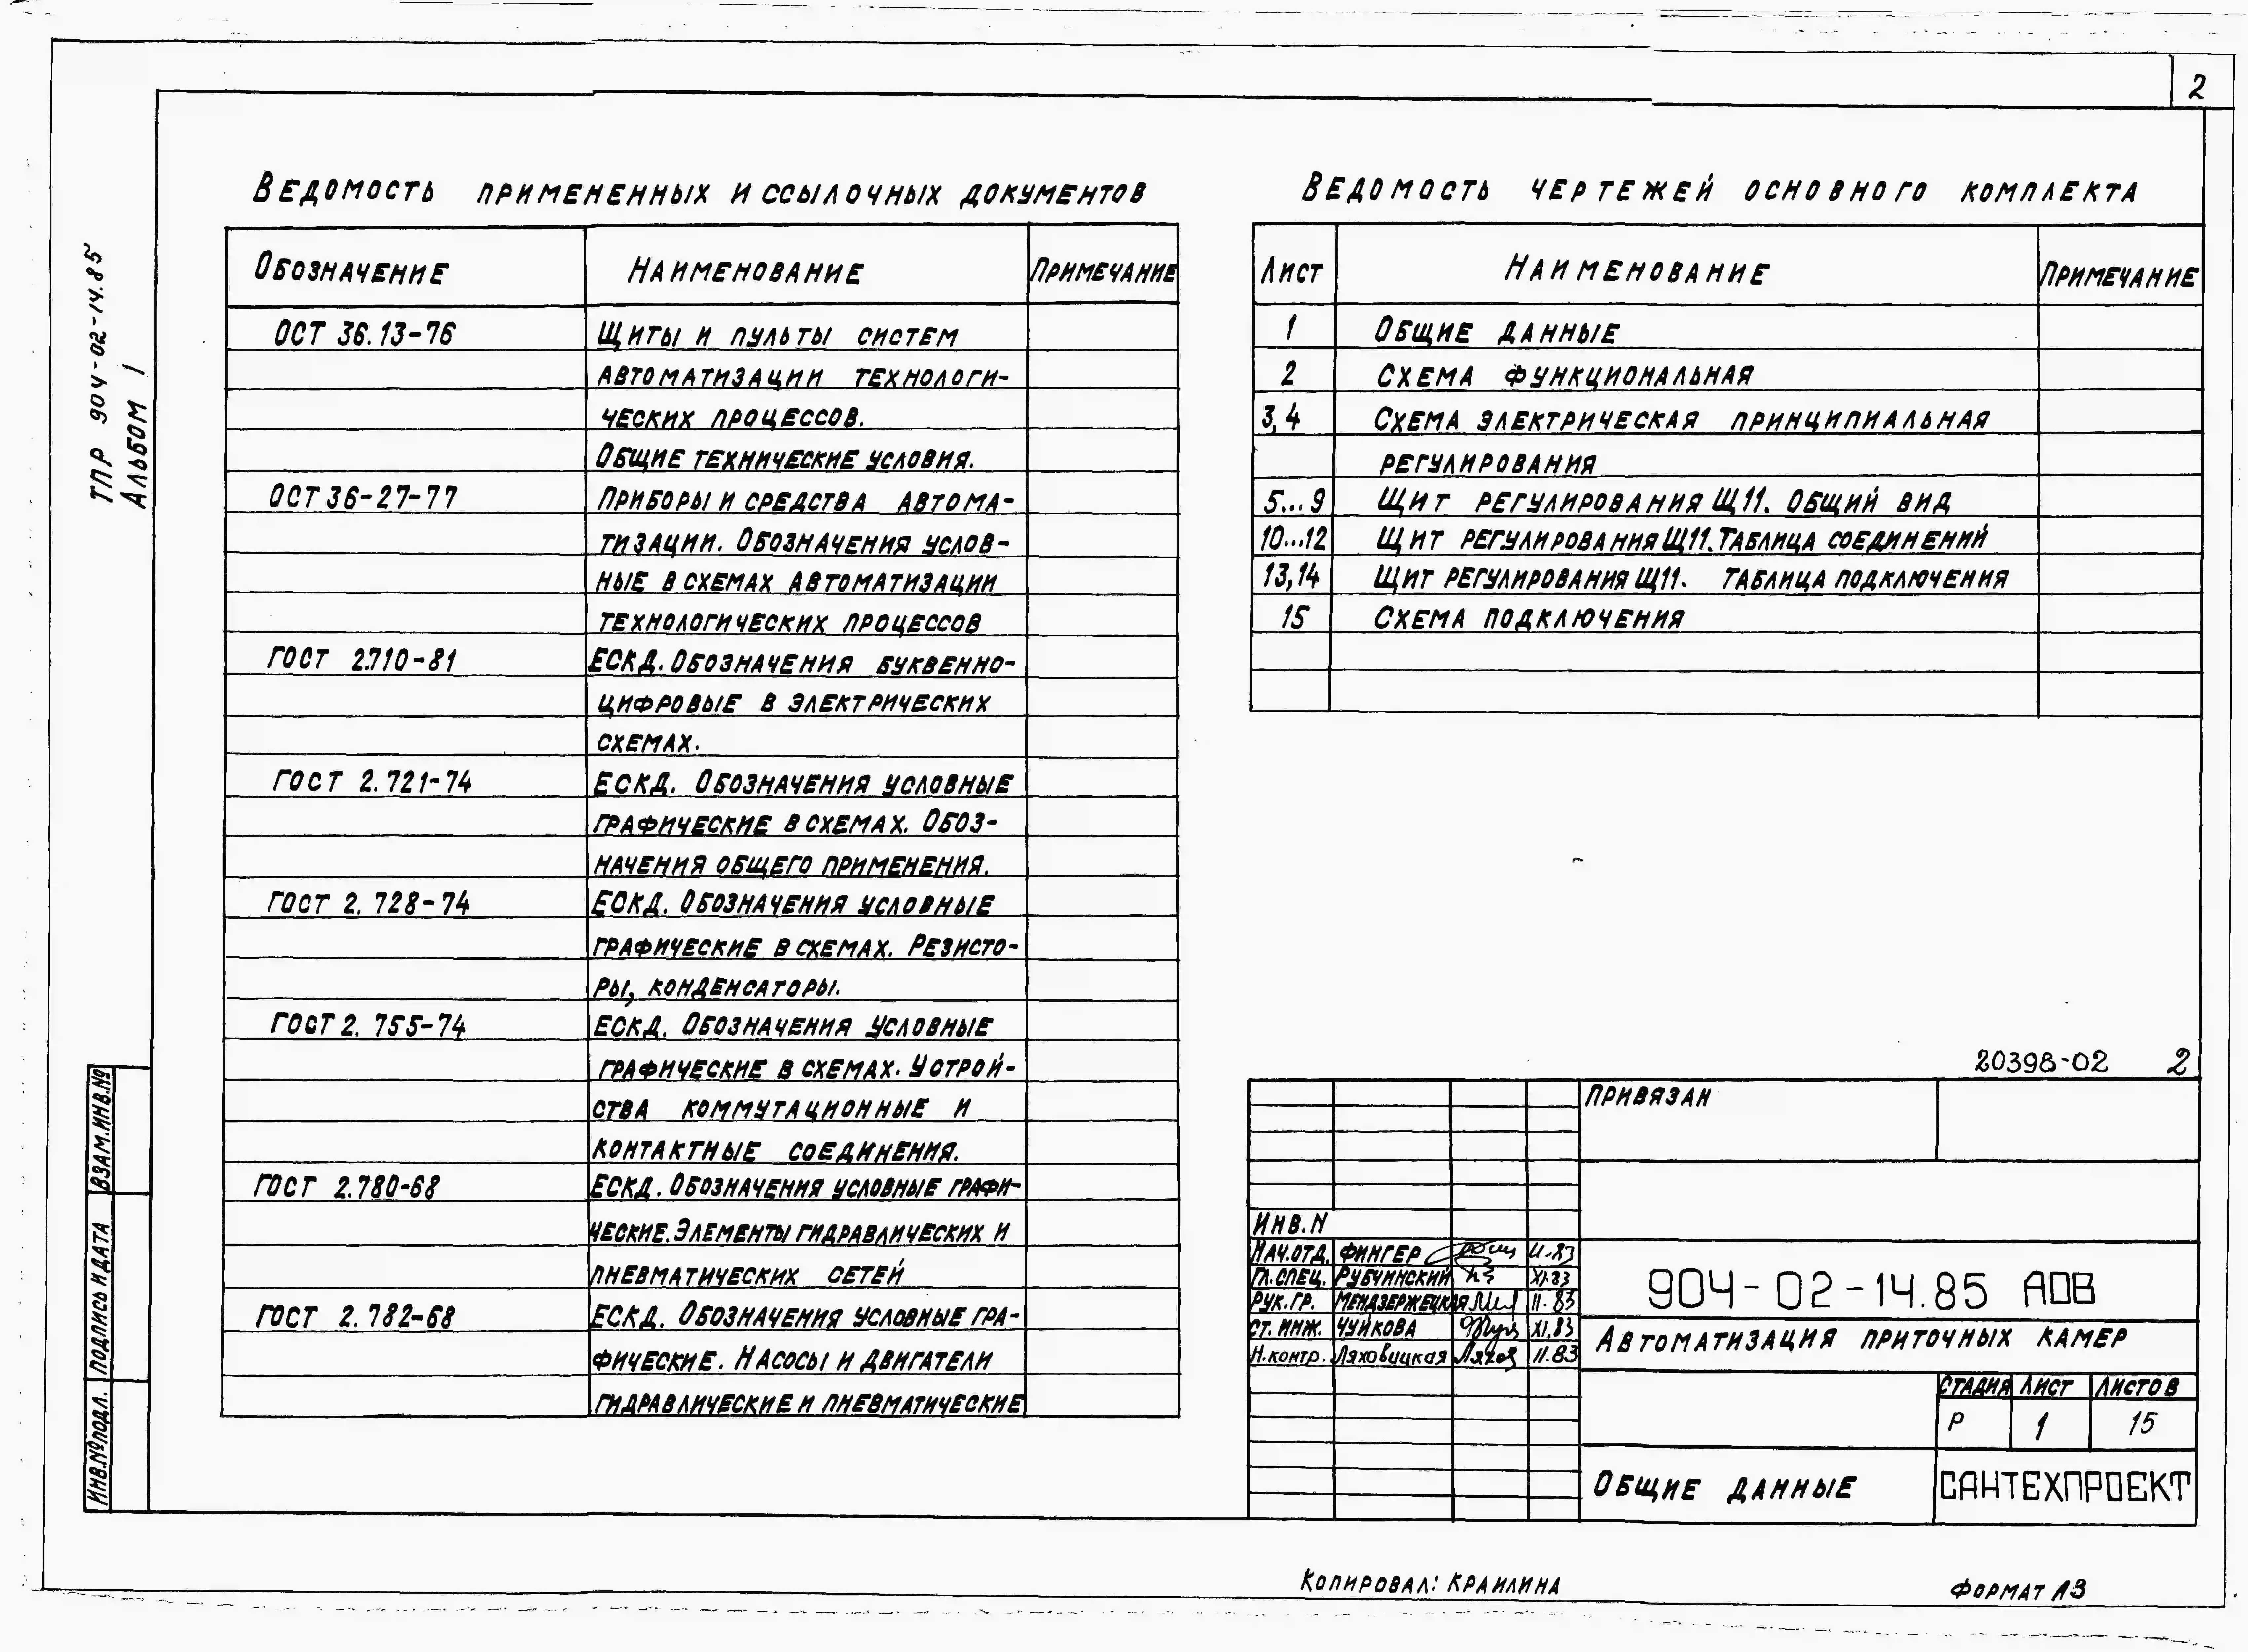 2
ТПР 904-02-14.85
Альбом 1
Ведомость примененных и ссылочных документов
Обозначение Наименование Примечание
ОСТ 36.13-76 Щиты и пульты систем
автоматизации технологи-
ческих процессов.
Общие технические условия.
ОСТ 36-27-77 Приборы и средства автома-
тизации. Обозначения услов-
ные в схемах автоматизации
технологических процессов
ГОСТ 2.710-81 ЕСКД. Обозначения буквенно-
цифровые в электрических
схемах.
ГОСТ 2.721-74 ЕСКД. Обозначения условные
графические в схемах. Обоз-
начения общего применения.
ГОСТ 2.728-74 ЕСКД. Обозначения условные
графические в схемах. Резисто-
ры, конденсаторы.
ГОСТ 2.755-74 ЕСКД. Обозначения условные
графические в схемах. Устрой-
ства коммутационные и
контактные соединения.
ГОСТ 2.780-68 ЕСКД. Обозначения условные графи-
ческие. Элементы гидравлических и
пневматических сетей
ГОСТ 2.782-68 ЕСКД. Обозначения условные гра-
фические. Насосы и двигатели
гидравлические и пневматические
Ведомость чертежей основного комплекта
Лист Наименование Примечание
1 Общие данные
2 Схема функциональная
3,4 Схема электрическая принципиальная
регулирования
5...9 Щит регулирования Щ11. Общий вид
10...12 Щит регулирования Щ11. Таблица соединений
13,14 Щит регулирования Щ11. Таблица подключения
15 Схема подключения
20398-02 2
Привязан
Инв.N
Нач.отд. Фингер 11.83
Гл.спец. Рубчинский XI.83
Рук.гр. Мендзержецкая 11.83
Ст.инж. Чуйкова XI.83
Н.контр. Ляховицкая Ляхов 11.83
904-02-14.85 АОВ
Автоматизация приточных камер
Стадия Лист Листов
Р 1 15
Общие данные
САНТЕХПРОЕКТ
Взам.инв.№
Подпись и дата
Инв.№подл.
Копировал: Краилина
Формат А3